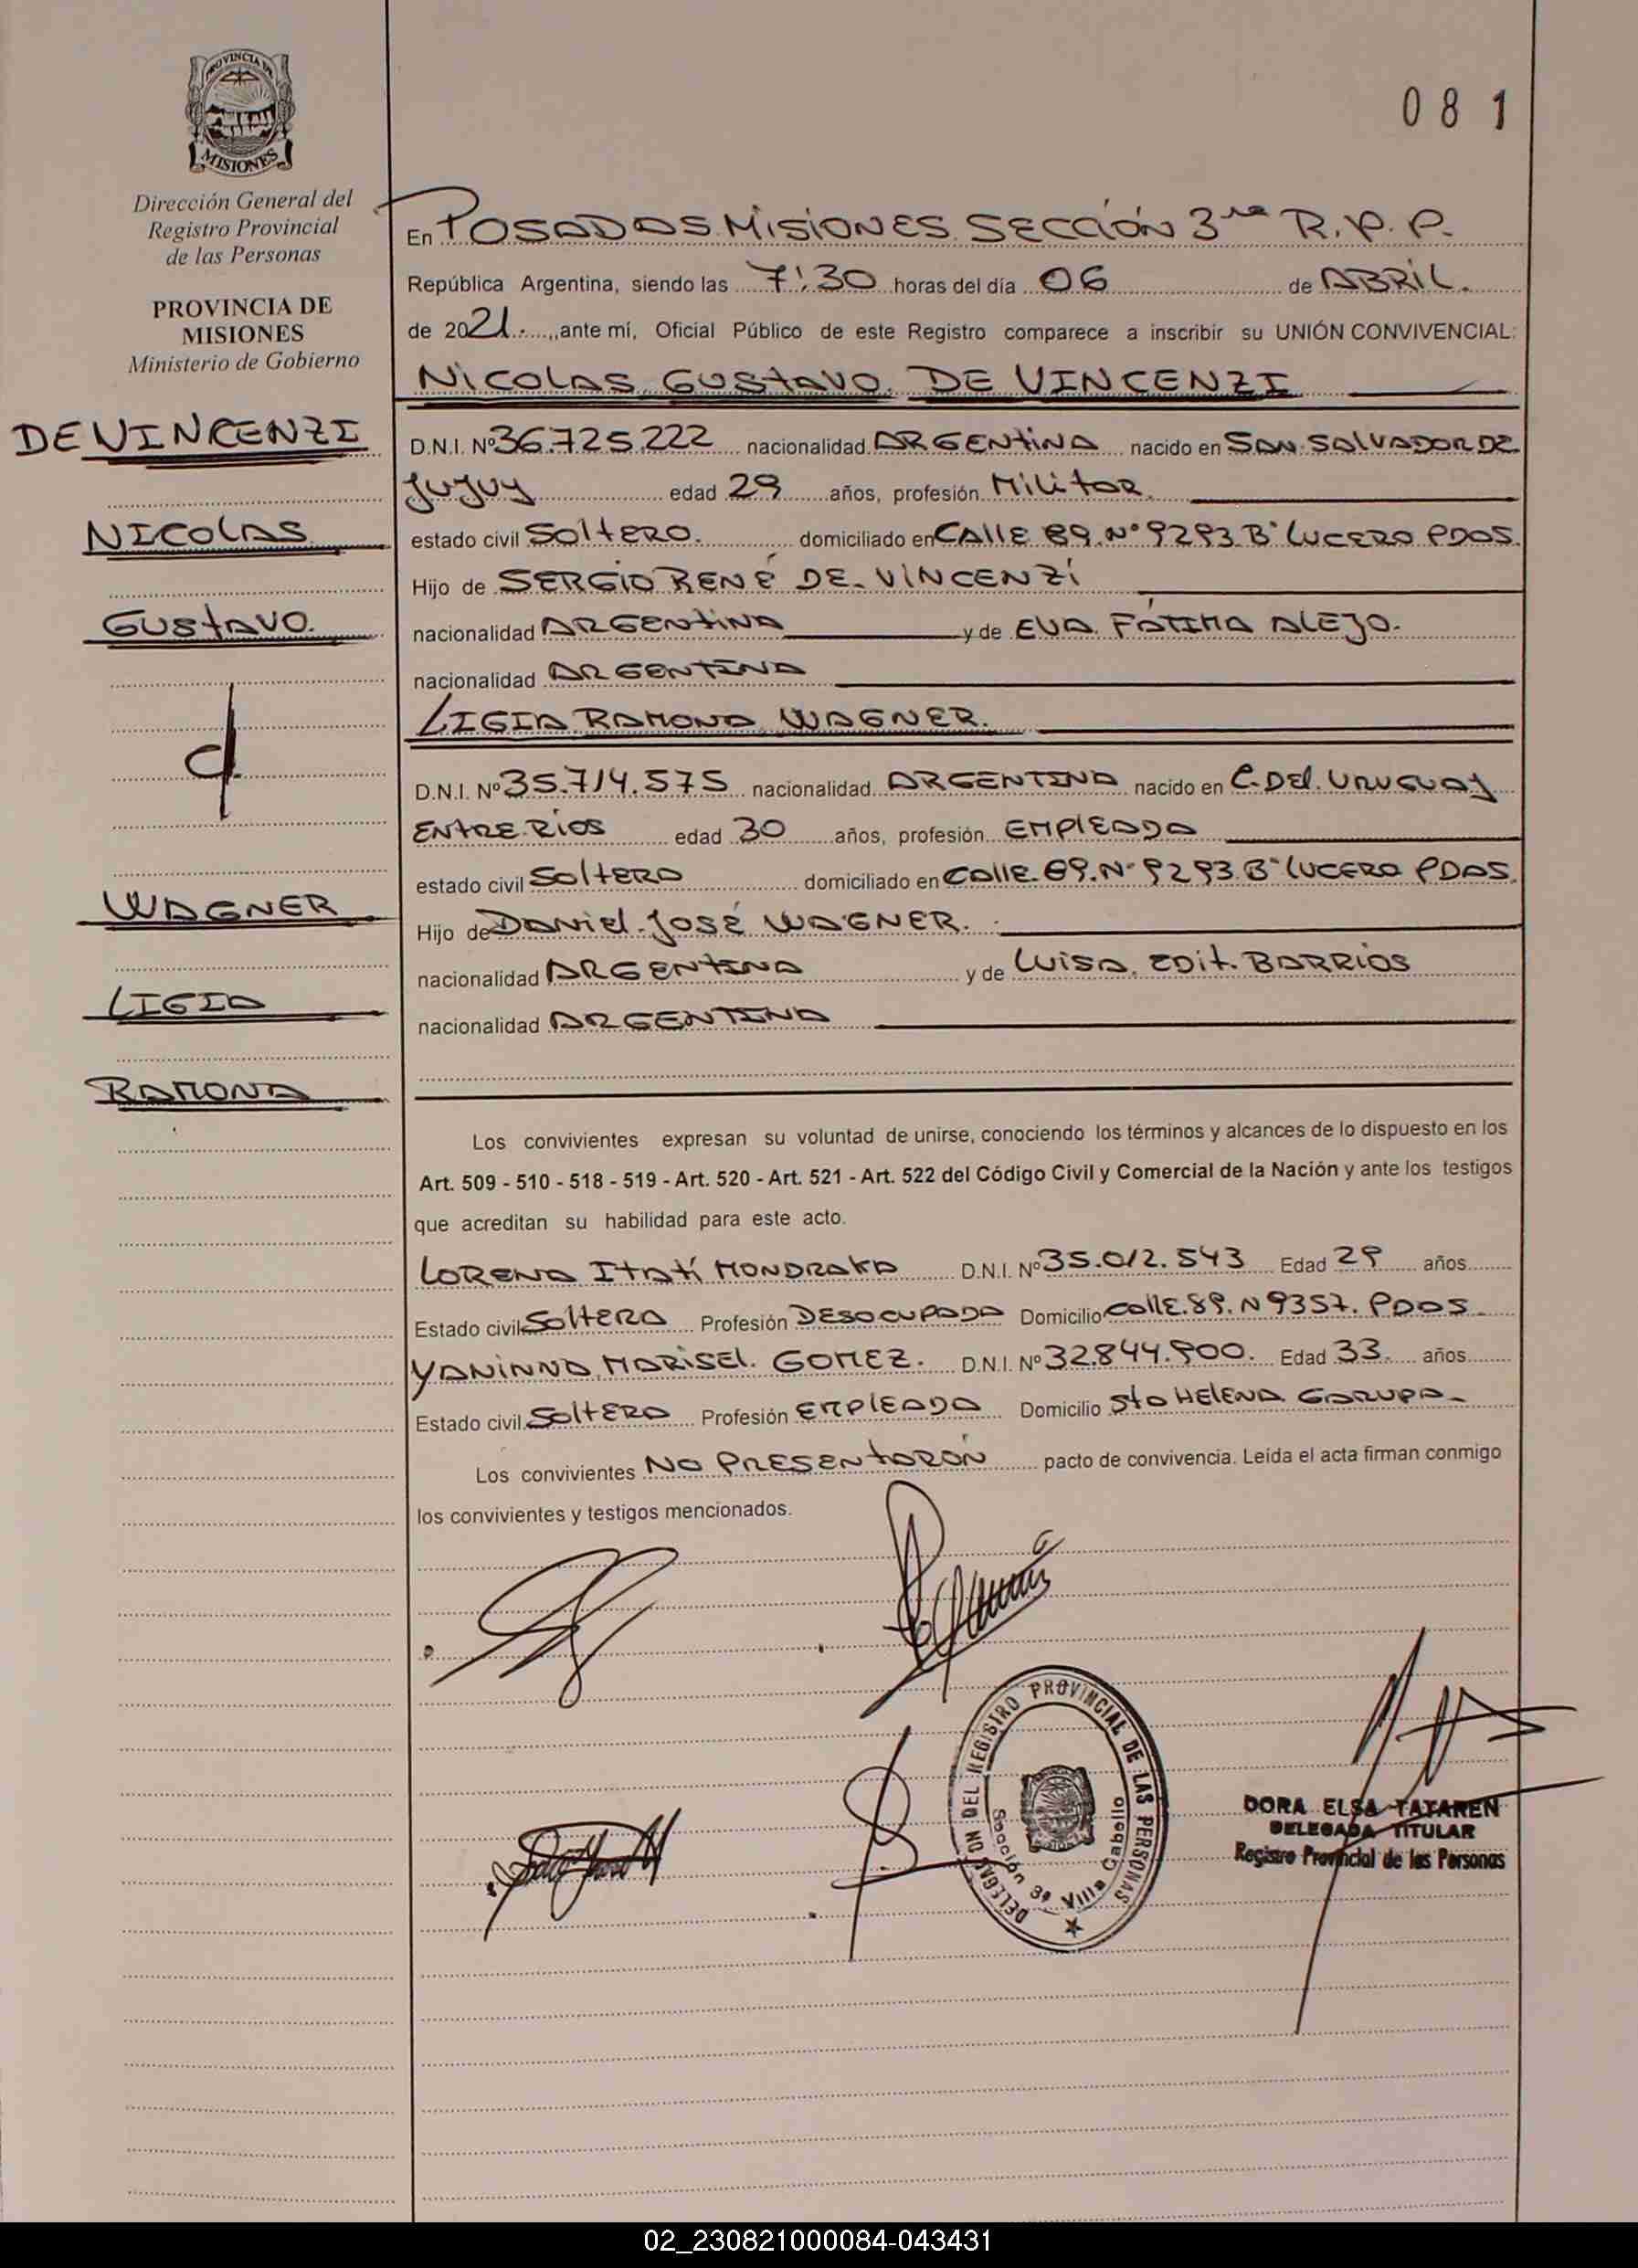 PROVINCIA DE
MISIONES
Dirección General del
Registro Provincial
de las Personas
PROVINCIA DE
MISIONES
Ministerio de Gobierno
DE VINCENZI
NICOLAS
GUSTAVO.
d
WAGNER
LIGIA
RAMONA
081
En POSADAS MISIONES SECCIÓN 3ra R.P.P.
República Argentina, siendo las 7:30 horas del día 06 de ABRIL.
de 2021.,ante mí, Oficial Público de este Registro comparece a inscribir su UNIÓN CONVIVENCIAL:
NICOLAS GUSTAVO DE VINCENZI
D.N.I. Nº 36.725.222 nacionalidad ARGENTINA nacido en SAN SALVADOR DE
JUJUY edad 29 años, profesión MILITAR.
estado civil SOLTERO. domiciliado en CALLE 89 Nº 9293 Bº LUCERO PDAS.
Hijo de SERGIO RENÉ DE VINCENZI
nacionalidad ARGENTINA y de EVA FÁTIMA ALEJO.
nacionalidad ARGENTINA
LIGIA RAMONA WAGNER.
D.N.I. Nº 35.714.575 nacionalidad ARGENTINA nacido en C. DEL URUGUAY
ENTRE RÍOS edad 30 años, profesión EMPLEADA
estado civil SOLTERA domiciliado en CALLE 89 Nº 9293 Bº LUCERO PDAS.
Hijo de DANIEL JOSÉ WAGNER.
nacionalidad ARGENTINA y de LUISA EDIT BARRIOS
nacionalidad ARGENTINA
Los convivientes expresan su voluntad de unirse, conociendo los términos y alcances de lo dispuesto en los
Art. 509 - 510 - 518 - 519 - Art. 520 - Art. 521 - Art. 522 del Código Civil y Comercial de la Nación y ante los testigos
que acreditan su habilidad para este acto.
LORENA ITATÍ MONDRAKA D.N.I. Nº 35.012.543 Edad 29 años
Estado civil SOLTERA Profesión DESOCUPADA Domicilio CALLE 89 N 9357. PDAS.
YANINNA MARISEL GOMEZ. D.N.I. Nº 32.844.900. Edad 33. años
Estado civil SOLTERA Profesión EMPLEADA Domicilio STA HELENA GARUPA.
Los convivientes NO PRESENTARÓN pacto de convivencia. Leída el acta firman conmigo
los convivientes y testigos mencionados.
DELEGACION DEL REGISTRO PROVINCIAL DE LAS PERSONAS
Sección 3ª Villa Cabello
DORA ELSA TATAREN
DELEGADA TITULAR
Registro Provincial de las Personas
02_230821000084-043431